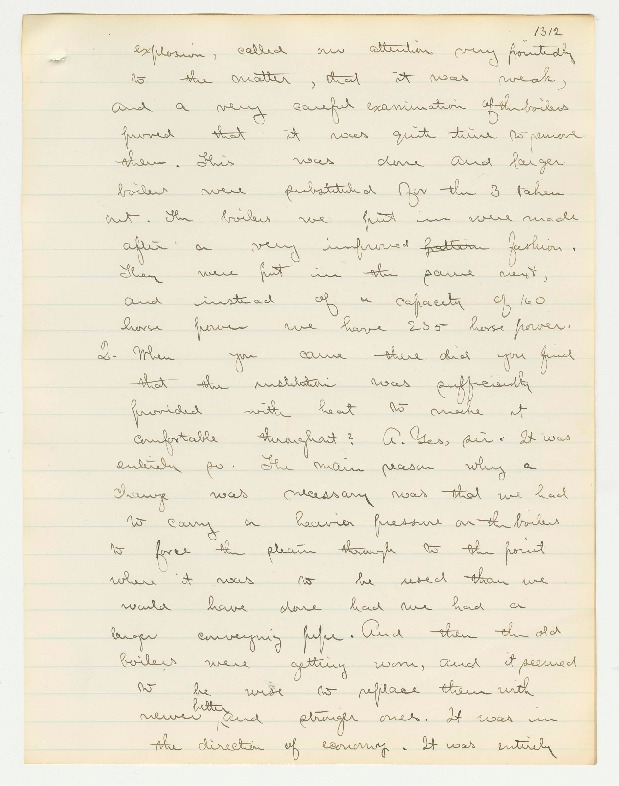 1312
explosion, called our attention very pointedly
to the matter, that it was weak,
and a very careful examination of the boilers
proved that it was quite time to remove
them. This was done and larger
boilers were substituted for the 3 taken
out. The boilers we put in were made
after a very improved pattern fashion.
They were put in the same next,
and instead of a capacity of 160
horse power we have 235 horse power.
Q. When you came there did you find
that the institution was sufficiently
provided with heat to make it
comfortable throughout? A. Yes, sir. It was
entirely so. The main reason why a
change was necessary was that we had
to carry a heavier pressure on the boilers
to force the steam through to the point
where it was to be used than we
would have done had we had a
larger conveying pipe. And then the old
boilers were getting worn, and it seemed
to be wise to replace them with
newer better, and stronger ones. It was in
the direction of economy. It was entirely